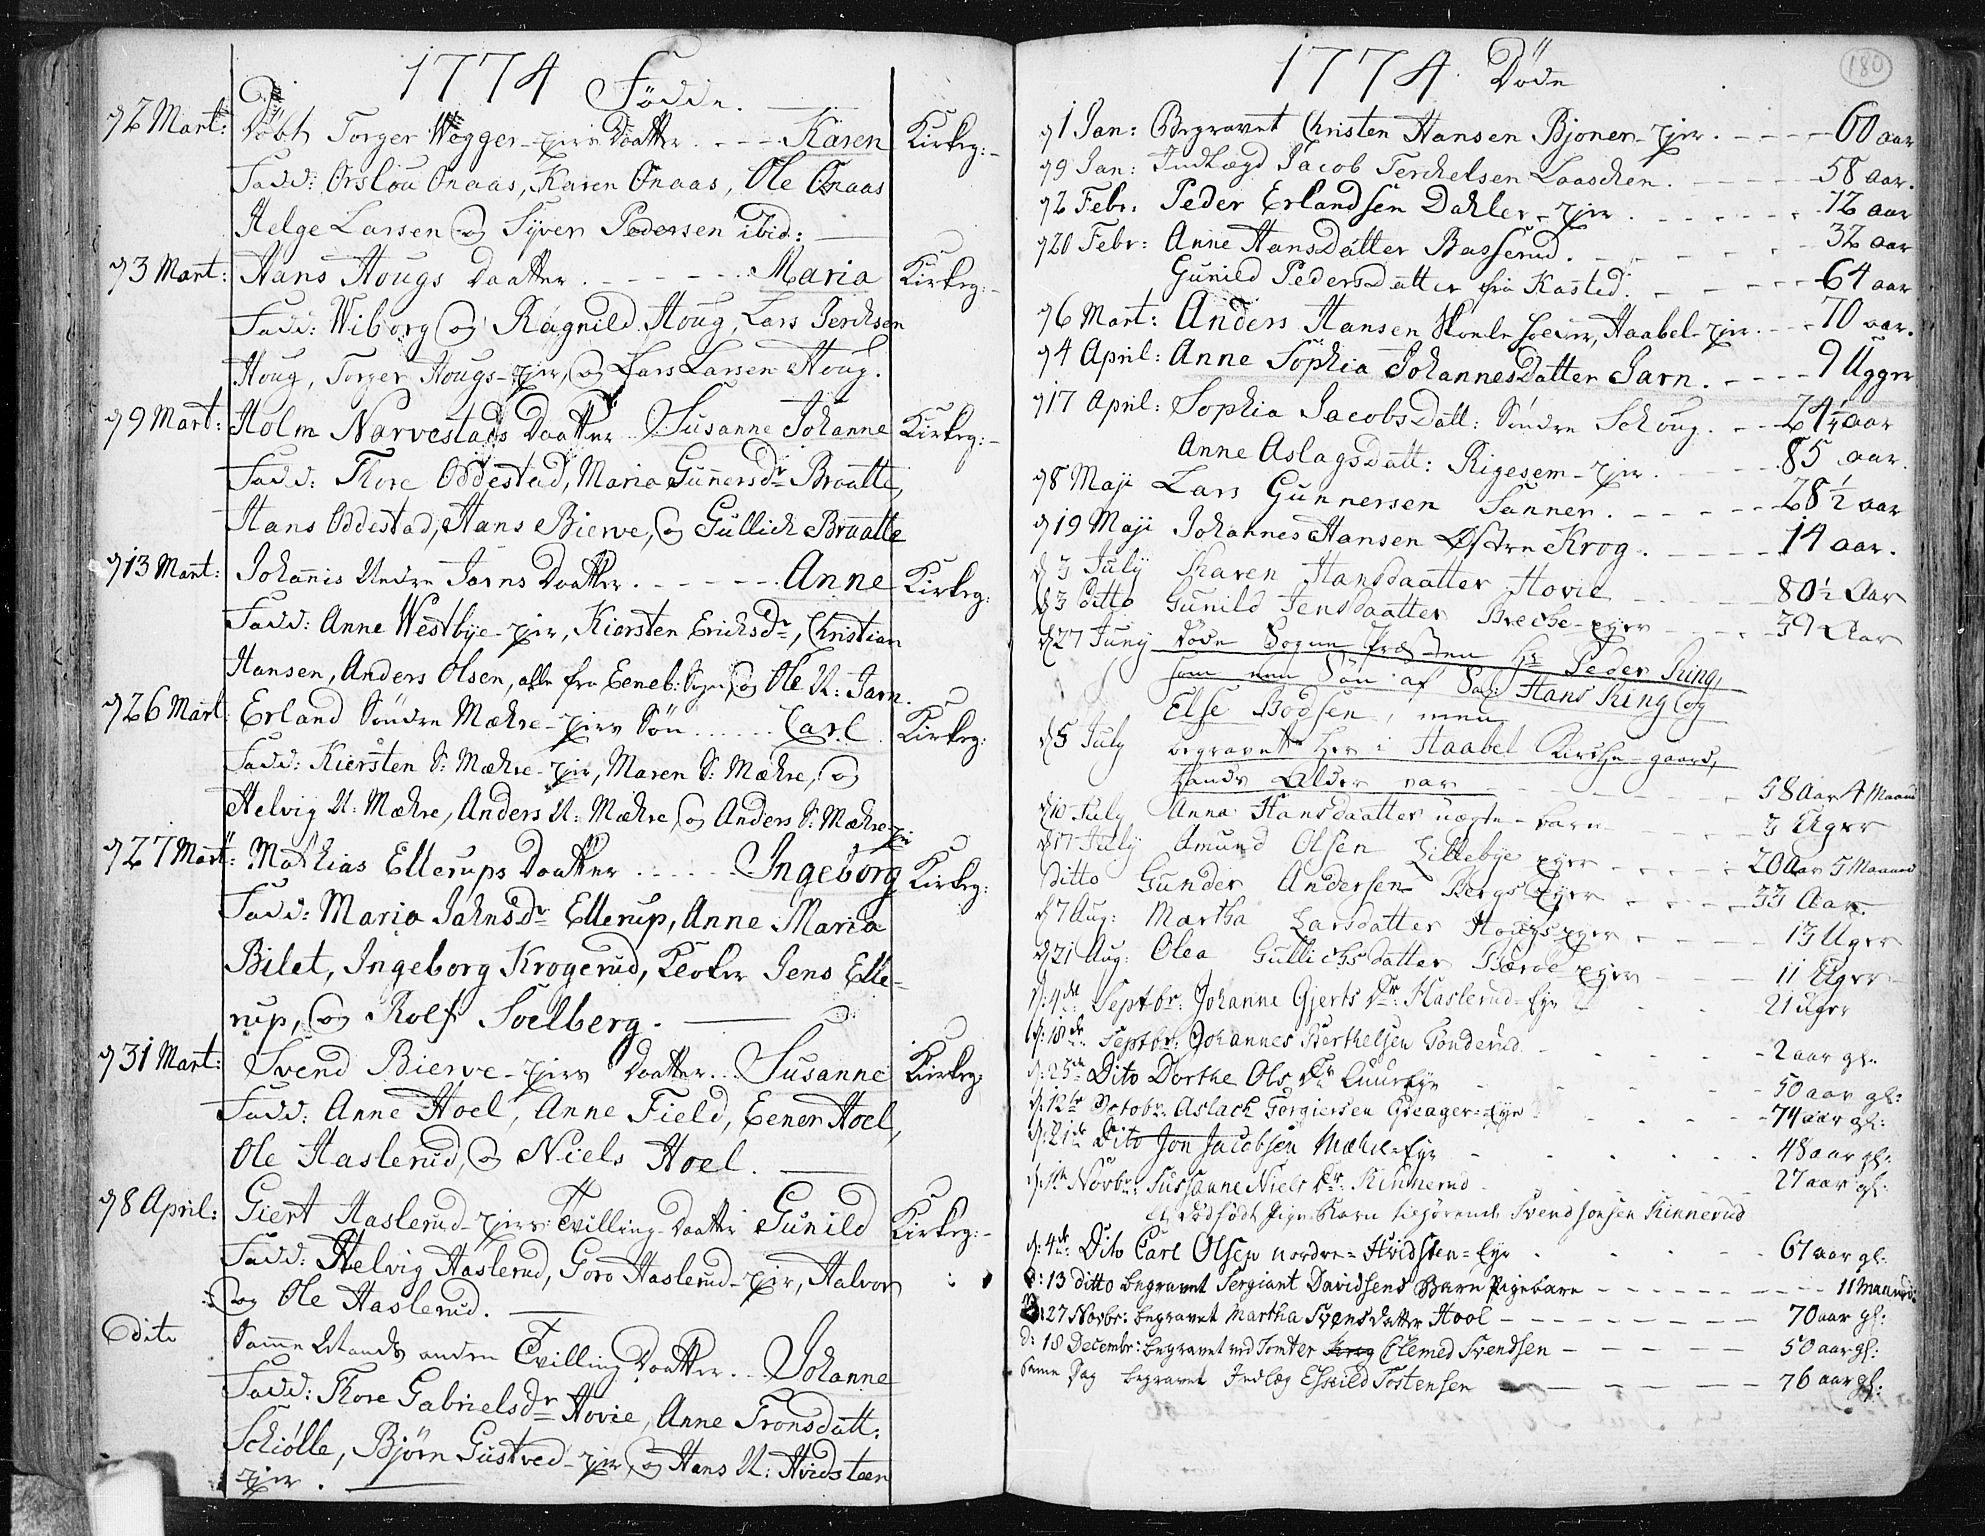 1774 Födde.
d 2 Mart: Döbt Torger Wegger-ejers Daatter. - - - Karen Kirkeg:
Fadd: Orslou Onaas, Karen Onaas, Ole Onaas
Helge Larsen og Syver Pedersen ibid:
d 3 Mart: Hans Hougs Daatter. - - - - Maria Kirkeg:
Fadd: Wiborg og Ragnild Houg, Lars Perchsen
Houg, Torger Hougs-ejer, og Lars Larsen Houg.
d 9 Mart: Holm Narvestads Daatter Susanne Johanne Kirkeg:
Fadd: Thore Oddestad, Maria Gunersdr Braatte,
Hans Oddestad, Hans Bierve, og Gullich Braatte
d 13 Mart: Johannis Nedre Jarns Daatter. - - - - Anne Kirkeg:
Fadd: Anne Westbye-ejer, Kiersten Erichsdr, Christian
Hansen, Anders Olsen, alle fra Eeneb: Sogn, og Ole N: Jarn.
d 26 Mart Erland Söndre Mæhre-ejers Sön ...... Carl Kirkeg:
Fadd: Kiersten S: Mæhre-ejer, Maren S: Mæhre, og
Helvig N: Mæhre, Anders N: Mæhre, og Anders S: Mæhre-ejer
d 27 Mart: Mathias Ellerups Daatter ..... Ingeborg Kirkeg:
Fadd: Maria Jahnsdr Ellerup, Anne Maria
Bilet, Ingeborg Krogerud, Klokker Jens Elle-
rup, og Rolf Soelberg.
d 31 Mart: Svend Bierve-ejers Daatter... Susanne Kirkeg:
Fadd: Anne Hoel, Anne Field, Eener Hoel,
Ole Haslerud, og Niels Hoel.
d 8 April: Giert Haslerud-ejers Tvilling-Daatter Gunild Kirkeg:
Fadd: Helvig Haslerud, Goro Haslerud-ejer, Halvor
og Ole Haslerud.
dito Samme Mands anden Tvilling Daatter... Johanne
Fadd: Thore Gabrielsdr Hovie, Anne Tronsdatt:
Schiölle, Björn Gustved-ejer, og Hans N: Hvidsteen
ejer.
1774. Döde
180
d 1 Jan: Begravet Christen Hansen Bjoner-ejer. - - - - 60 aar
d 9 Jan: Indlægd Jacob Terchelsen Laaschen. - - - - 58 aar.
d 2 Febr: Peder Erlandsen Dahler-ejer. - - - - 12 aar
d 20 Febr: Anne Hansdatter Basserud. - - - - 32 aar
Gunild Pedersdatter fra Kasted. - - - - 64 aar
d 6 Mart: Anders Hansen Skoeleholder, Haabel-ejer. - - - 70 aar.
d 4 April: Anne Sophia Johannesdatter Jarn. - - - - 9 Uger
d 17 April: Sophia Jacobsdatt: Söndre Schoug. - - 24 1/4 aar
Anne Aslagsdatt: Rigesem-ejer. - - - - 85 aar.
d 8 Maji Lars Gunnersen Sanner. - - - - 28 1/2 aar
d 19 Maji Johannes Hansen Östre Krog. - - - - 14 aar.
d 3 July Karen Hansdaatter Hovie - - - - 80 1/2 Aar
d 3 Ditto Gunild Jensdaatter Breche-ejer - - - - 39 Aar
d 27 Juny döde Sogne Præsten Hr Peder Ring,
som var Sön af Sal: Hans Ring og
Else Bodsen, men
d 5 July begravet her i Haabel Kirche-gaard,
hands Alder var - - - - 58 Aar 4 Maaned
d 10 July Anna Hansdaatter uægte-barn - - - - 3 Uger
d 17 July Amund Olsen Lillebye ejer - - - - 20 Aar 5 Maaned
Ditto Gunder Andersen Bergs Ejer - - - - 33 Aar
d 7 Aug: Martha Larsdatter Hougs ejer - - - - 13 Uger
d 21 Aug: Olea Gullichsdatter Bærøe ejer - - - - 11 Uger
d: 4de Septbr: Johanne Gjerts Dr: Haslerud-Eye - - 21 Uger
d: 18de Septbr: Johannes Berthelsen Tonderud - - - - 2 aar gl:
d: 25de Dito Dorthe Ols Dr Luur Eye - - - - 50 aar gl:
d: 12te Octobr: Aslach Torgiersen Greager-Eye - - - 74 aar gl:
d: 21de Dito Jon Jacobsen Mæhre-Eye - - - - 48 aar gl:
d: 1te Novbr: Sussanne Niels Dr: Kinnerud - - - - 27 aar gl:
Et dødfødt Pige-Barn tilhörende Svend Jonsen Kinnerud
d: 4de: Dito Carl Olsen nordre-Hvidsten-Eye - - - - 67 aar gl:
d: 13 ditto begravet Sergiant Davidsens Barn Pigebarn - - - - 11 Maaneder
d: 27 Novbr: begravet Martha Svensdatter Hool - - - - 70 aar gl:
d: 18 Decembr: begravet ved Tomter Clemed Svendsen - - - - 50 aar gl:
Samme Dag begravet Indlæg Eskild Tostensen - - - - 76 aar gl: